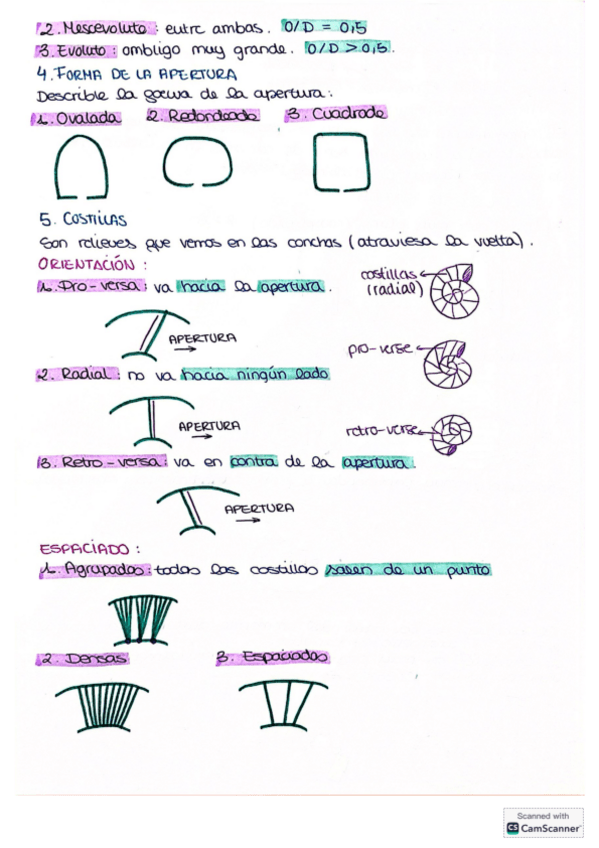 2. Mesoevoluto: entre ambas. O/D = 0,5
3. Evoluto: ombligo muy grande. O/D > 0,5.
4. FORMA DE LA APERTURA
Describe la forma de la apertura:
1. Ovalada 2. Redondeada 3. Cuadrada
5. COSTILLAS
Son relieves que vemos en las conchas (atraviesa la vuelta).
ORIENTACIÓN:
costillas
(radial)
1. Pro-versa: va hacia la apertura.
APERTURA
pro-verse
2. Radial: no va hacia ningún lado
APERTURA
retro-verse
3. Retro-versa: va en contra de la apertura.
APERTURA
ESPACIADO:
1. Agrupadas: todas las costillas salen de un punto
2. Densas 3. Espaciadas
Scanned with
CS CamScanner